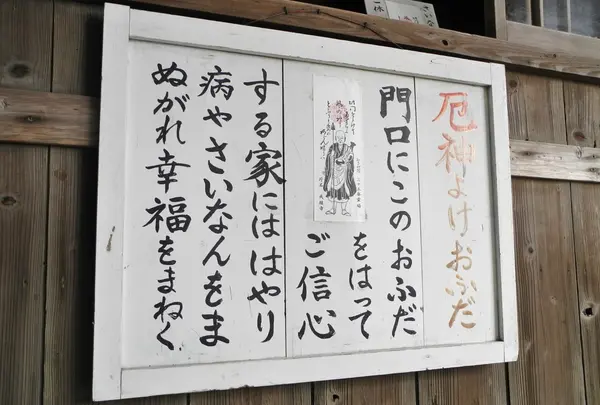 厄神よけおふだ
門口にこのおふだ
をはって
ご信心
する家にははやり
病やさいなんをま
ぬがれ幸福をまねく